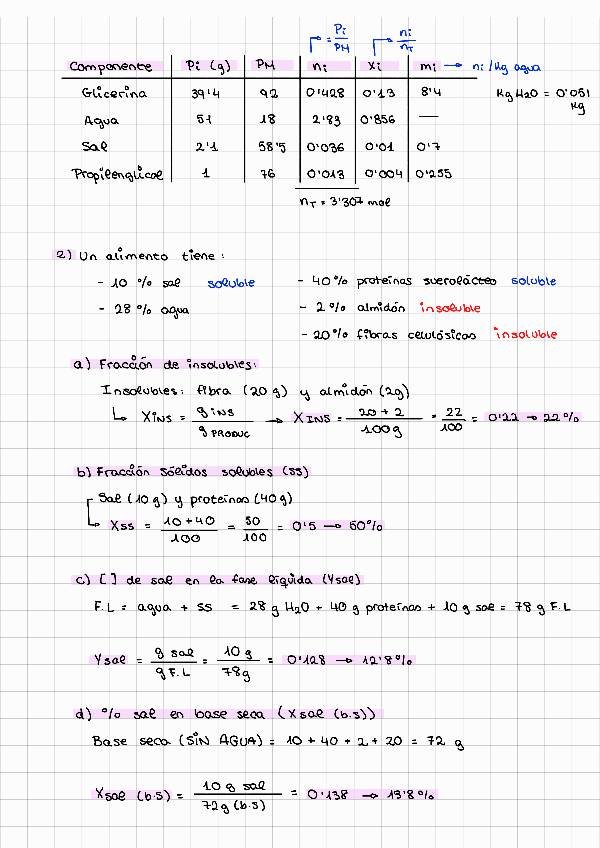 = Pi/PM    ni/nT
Componente Pi (g) PM ni Xi mi → ni/Kg agua
Glicerina 39'4 92 0'428 0'13 8'4 Kg H2O = 0'051 Kg
Agua 51 18 2'83 0'856 —
Sal 2'1 58'5 0'036 0'01 0'7
Propilenglicol 1 76 0'013 0'004 0'255
nT = 3'307 mol
2) Un alimento tiene:
- 10 % sal soluble - 40% proteínas suerolácteo soluble
- 28% agua - 2% almidón insoluble
- 20% fibras celulósicas insoluble
a) Fracción de insolubles:
Insolubles: fibra (20 g) y almidón (2g)
↳ XINS = g INS / g PRODUC → XINS = 20 + 2 / 100 g = 22 / 100 = 0'22 → 22%
b) Fracción Sólidos solubles (SS)
Sal (10 g) y proteínas (40g)
↳ XSS = 10 + 40 / 100 = 50 / 100 = 0'5 → 50%
c) [ ] de sal en la fase líquida (Ysal)
F.L = agua + SS = 28 g H2O + 40 g proteínas + 10 g sal = 78 g F.L
Ysal = g sal / g F.L = 10 g / 78g = 0'128 → 12'8%
d) % sal en base seca (Xsal (b.s))
Base seca (SIN AGUA) = 10 + 40 + 2 + 20 = 72 g
Xsal (b.s) = 10 g sal / 72g (b.s) = 0'138 → 13'8%